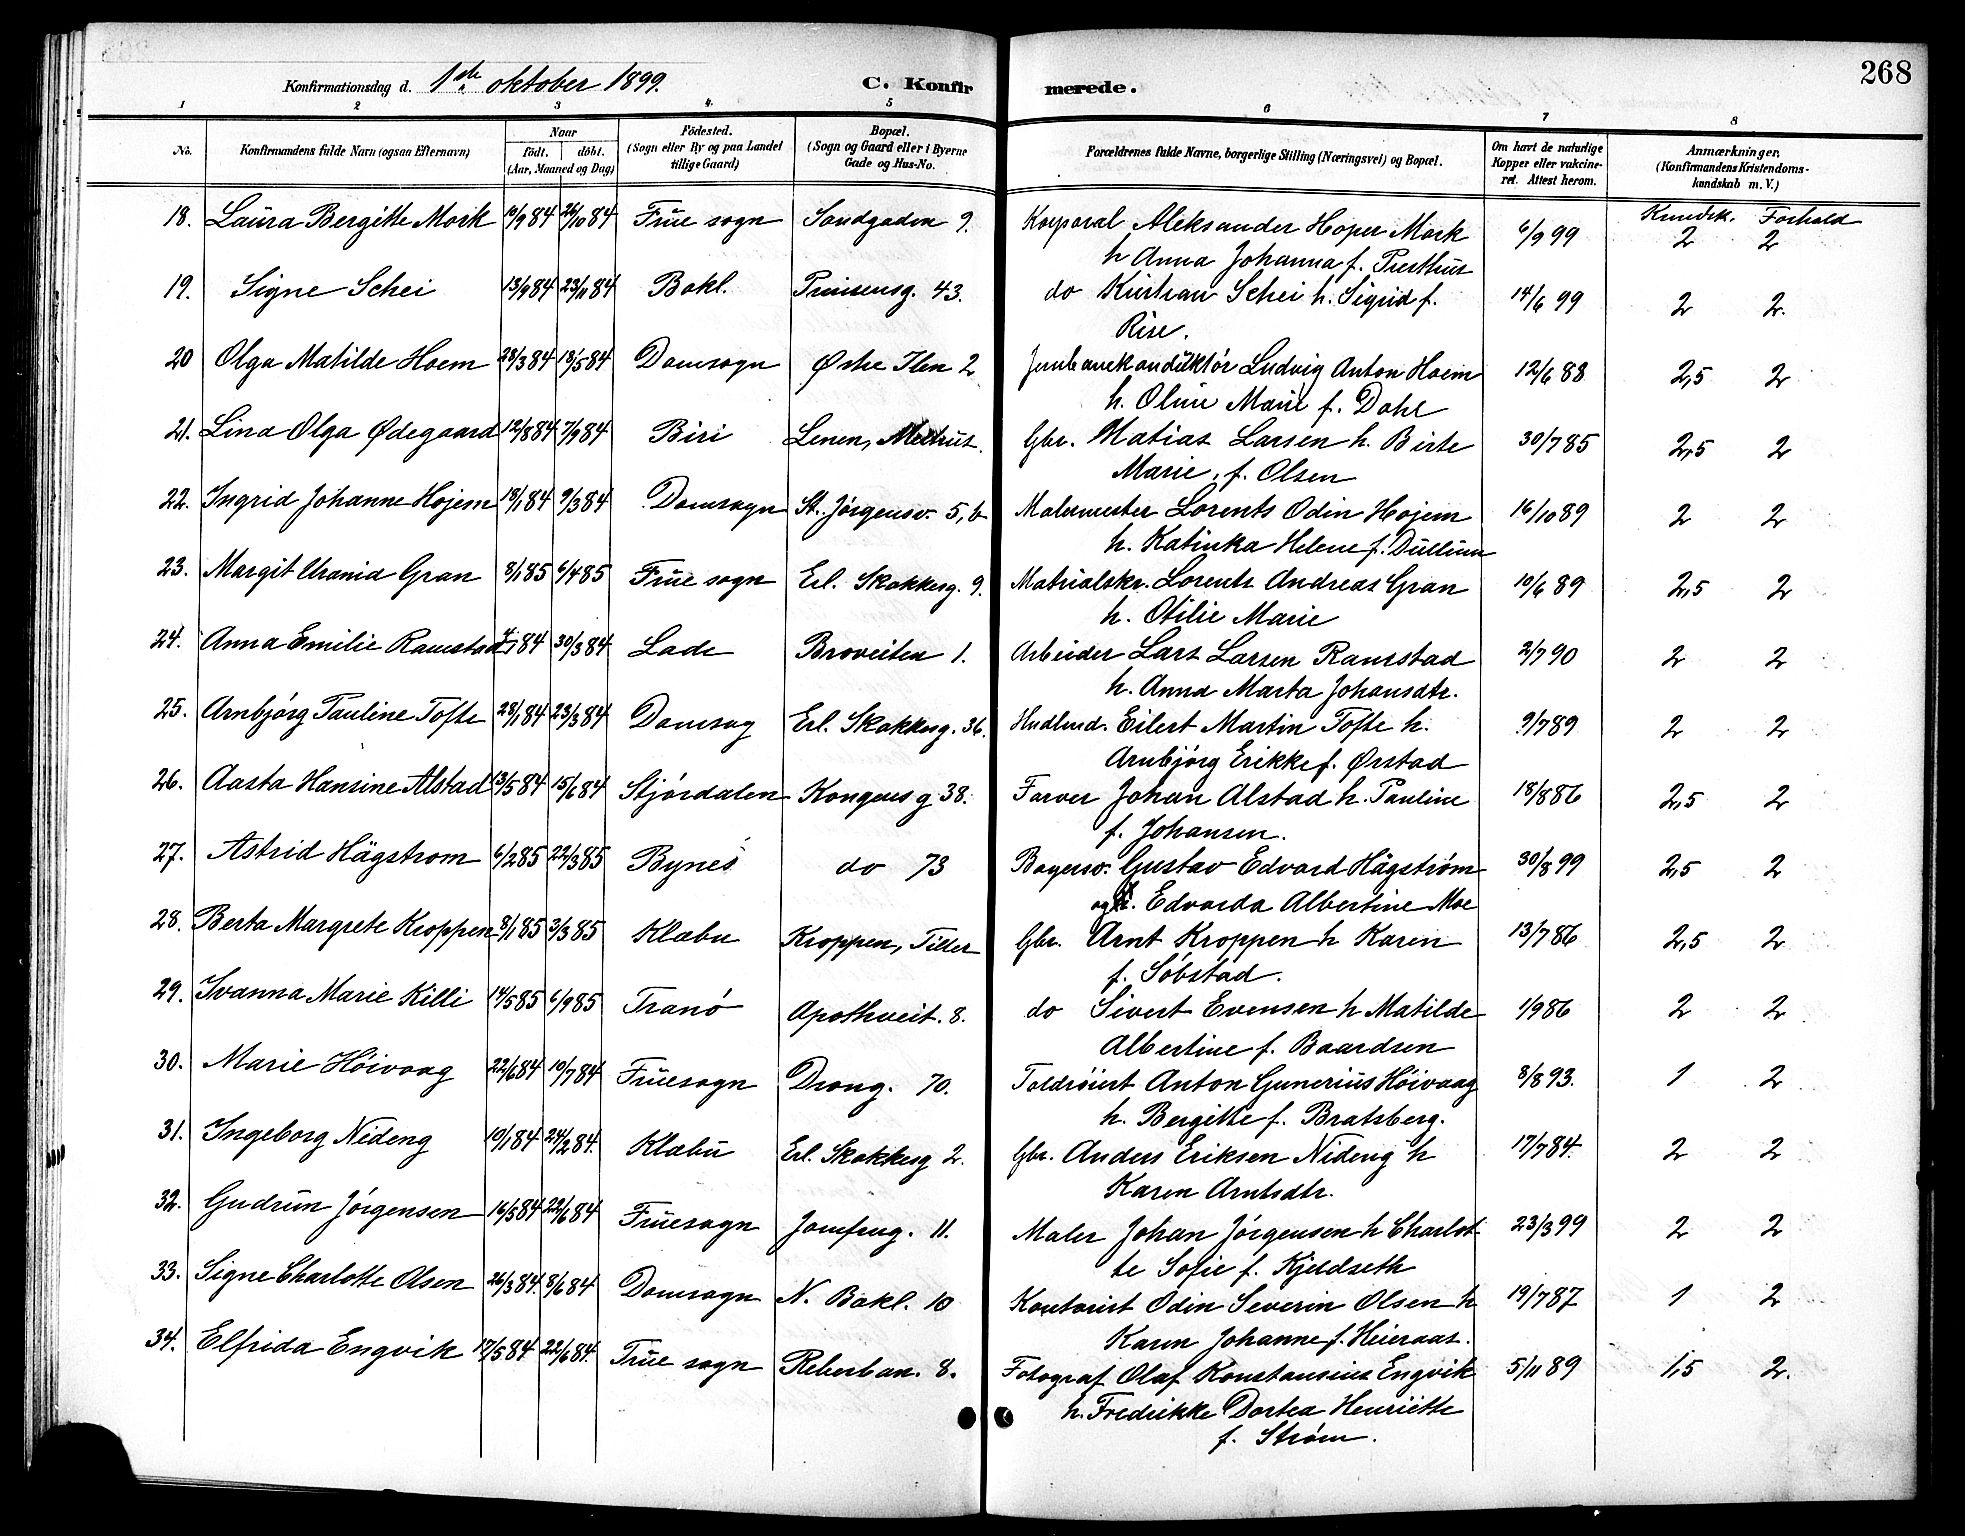 268
Konfirmationsdag d. 1ste oktober 1899. C. Konfirmerede.
1 2 3 4. 5 6 7 8
No. Konfirmandens fulde Navn (ogsaa Efternavn) Naar født. døbt. (Aar, Maaned og Dag) Fødested. (Sogn eller By og paa Landet tillige Gaard) Bopæl. (Sogn og Gaard eller i Byerne Gade og Hus-No. Forældrenes fulde Navne, borgerlige Stilling (Næringsvei) og Bopæl. Om havt de naturlige Kopper eller vakcineret. Attest herom. Anmærkninger, (Konfirmandens Kristendomskundskab m. V.)
Kundsk. Forhold
18. Laura Bergitte Mork 10/9 84 26/10 84 Frue sogn Sandgaden 9. Korporal Aleksander Hoper Mork 6/9 99 2 2
h Anna Johanna f. Presthus
19. Signe Schei 13/9 84 23/11 84 Bakl. Prinsensg. 43. do Kristian Schei h. Sigrid f. 14/6 99 2 2.
Rise.
20 Olga Matilde Hoem 28/3 84 18/5 84 Domsogn Østre Ilen 2 Jernbanekonduktør Ludvig Anton Hoem 12/6 88 2,5 2
h. Oline Marie f. Dahl
21. Lina Olga Ødegaard 12/8 84 7/9 84 Biri Leren, Melhus. Gbr. Matias Larsen h. Birte 30/7 85 2,5 2
Marie, f. Olsen
22. Ingrid Johanne Højem 18/1 84 9/3 84 Domsogn St. Jørgensv. 5,b Malermester Lorents Odin Hojem 16/10 89 2 2
h. Katinka Helene f. Dullum
23. Margit Urania Gran 8/1 85 6/4 85 Frue sogn Erl. Skakkesg. 9. Matrialskr. Lorents Andreas Gran 10/6 89 2,5 2
h. Otilie Marie
24. Anna Emilie Ramstad 4/1 84 30/3 84 Lade Broveiten 1. Arbeider Lars Larsen Ramstad 2/7 90 2 2
h. Anna Marta Johansdtr.
25. Arnbjørg Pauline Tofte 28/1 84 23/3 84 Domsog Erl. Skakkesg. 36. Hndlend. Eilert Martin Tofte h. 9/7 89 2 2
Arnbjørg Erikke f. Ørstad
26. Aasta Hansine Alstad 13/5 84 15/6 84 Stjørdalen Kongens g 38. Farver Johan Alstad h. Pauline 18/8 86 2,5 2
f. Johansen.
27. Astrid Hägstrom 6/2 85 22/3 85 Bynes do 73 Bagersv. Gustav Edvard Hägstrøm 30/8 99 2,5 2
og h. Edvarda Albertine Moe
28. Berta Margrete Kroppen 8/1 85 3/3 85 Klæbu Kroppen, Tiller Gbr. Arnt Kroppen h Karen 13/7 86 2,5 2
f. Søbstad.
29. Ivanna Marie Killi 14/5 85 6/9 85 Tranø Apothveit. 8. do Sivert Evensen h Matilde 1/9 86 2 2
Albertine f. Baardsen
30. Marie Høivaag 22/6 84 10/7 84 Fruesogn Drong. 70. Toldrøiert Anton Gunerius Høivaag 8/8 93. 1 2
h. Bergitte f. Bratsberg.
31. Ingeborg Nideng 10/1 84 24/2 84. Klæbu Erl. Skakkesg 2. Gbr. Anders Eriksen Nideng h 17/7 84. 2 2
Karen Arntsdtr.
32. Gudrun Jørgensen 16/5 84 22/6 84 Fruesogn Jomfrug. 11. Maler Johan Jørgensen h Charlot- 23/3 99 2 2
te Sofie f. Kjeldseth
33. Signe Charlotte Olsen 26/3 84. 8/6 84 Domsogn N. Bakl. 10 Kontorist Odin Severin Olsen h 19/7 87 1 2
Karen Johanne f. Heieraas.
34. Elfrida Engvik 17/5 84 22/6 84. Frue sogn Reberban. 8. Fotograf Olaf Konstansius Engvik 5/11 89 1,5 2.
h. Fredrikke Dortea Henriette
f. Strøm.